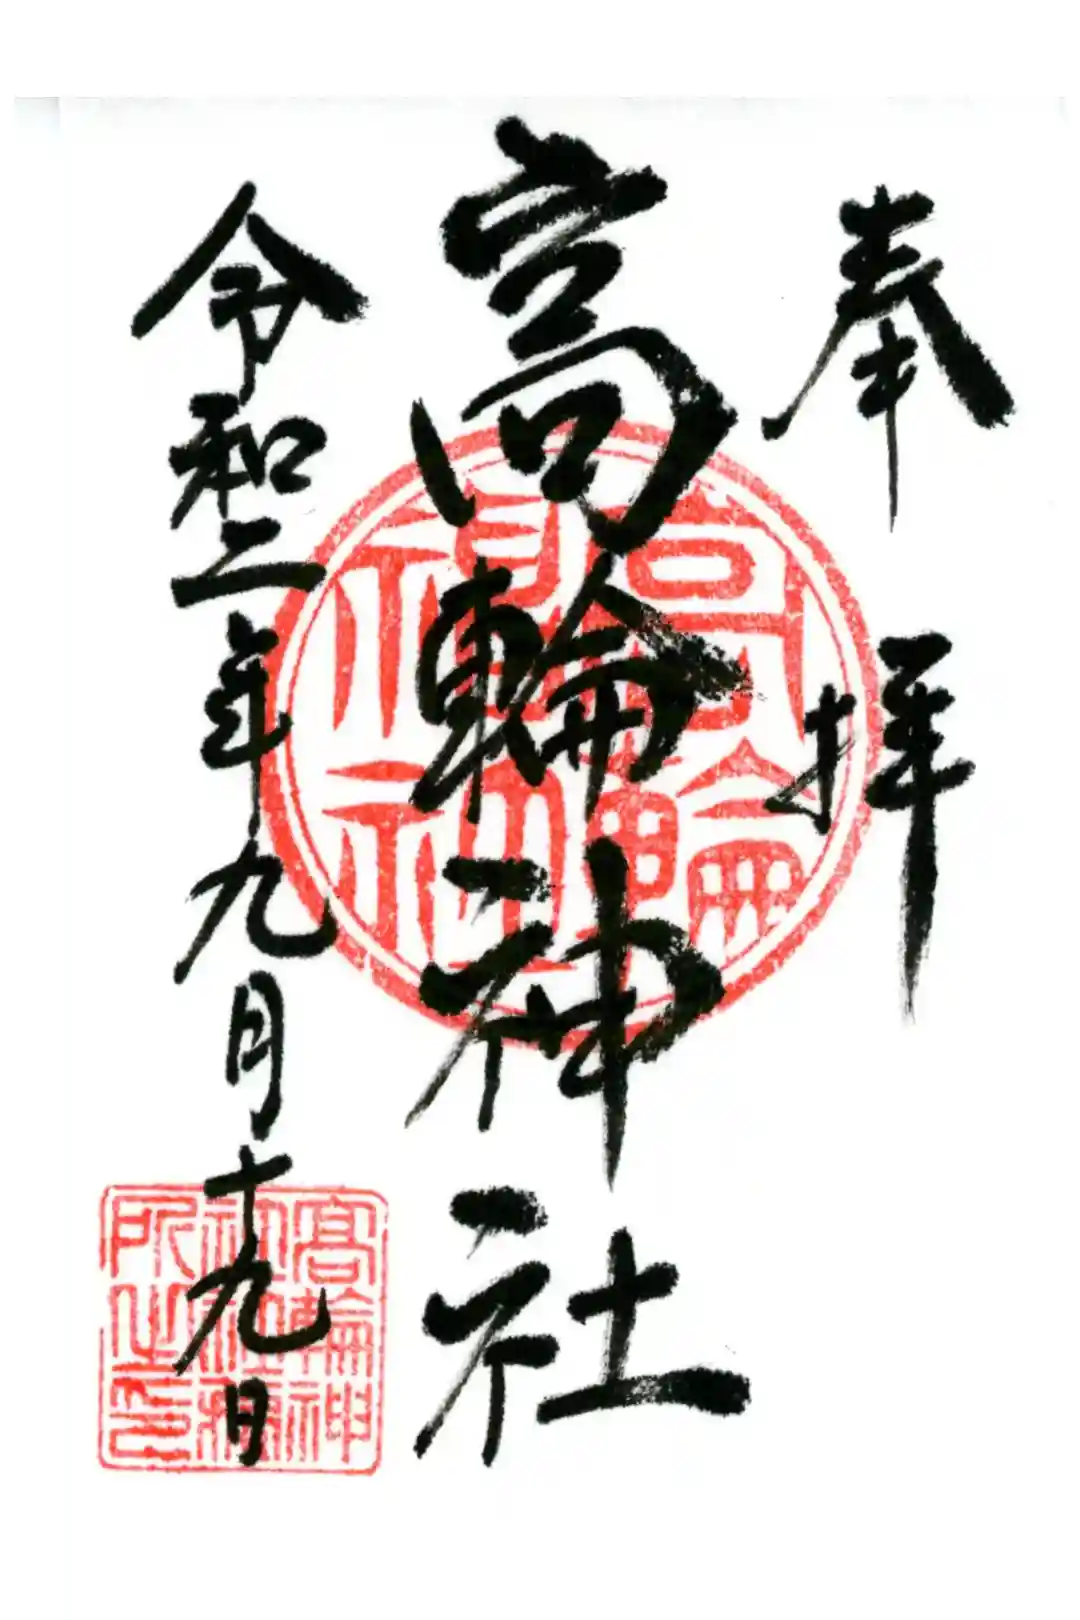 奉拝
高輪神社
令和二年九月十九日
高輪神社
高輪神
所之印